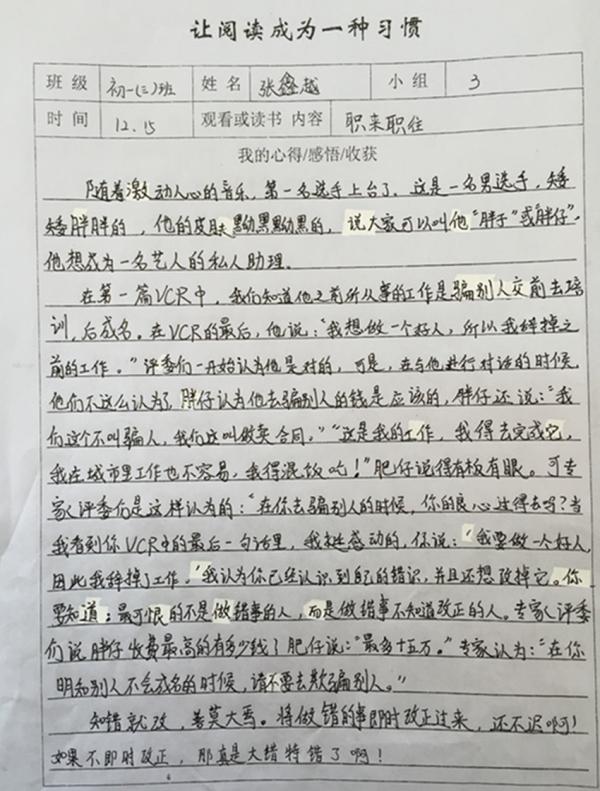 让阅读成为一种习惯
班级 初一(三)班 姓名 张鑫越 小组 3
时间 12.15 观看或读书 内容 职来职往
我的心得/感悟/收获
随着激动人心的音乐，第一名选手上台了，这是一名男选手，矮
矮胖胖的，他的皮肤黝黑黝黑的，说大家可以叫他“胖子”或“胖仔”，
他想成为一名艺人的私人助理。
在第一篇VCR中，我们知道他之前所从事的工作是骗别人交前去培
训，后成名。在VCR的最后，他说：“我想做一个好人，所以我辞掉之
前的工作。”评委们一开始认为他是对的，可是，在与他进行对话的时候，
他们不这么认为了，胖仔认为他去骗别人的钱是应该的，胖仔还说：“我
们这个不叫骗人，我们这叫做卖合同。”“这是我的工作，我得去完成它，
我在城市里工作也不容易，我得混饭吃！”肥仔说得有板有眼。可专
家评委们是这样认为的：“在你去骗别人的时候，你的良心过得去吗？当
我看到你VCR中的最后一句话里，我挺感动的，你说：‘我要做一个好人，
因此我辞掉了工作。’我认为你已经认识到自己的错识，并且还想改掉它。你
要知道：最可恨的不是做错事的人，而是做错事不知道改正的人。专家评委
们说胖仔收费最高的有多少钱？肥仔说：“最多十五万。”专家认为：“在你
明知别人不会成名的时候，请不要去欺骗别人。”
知错就改，善莫大焉。将做错的事即时改正过来，还不迟啊！
如果不即时改正，那真是大错特错了啊！